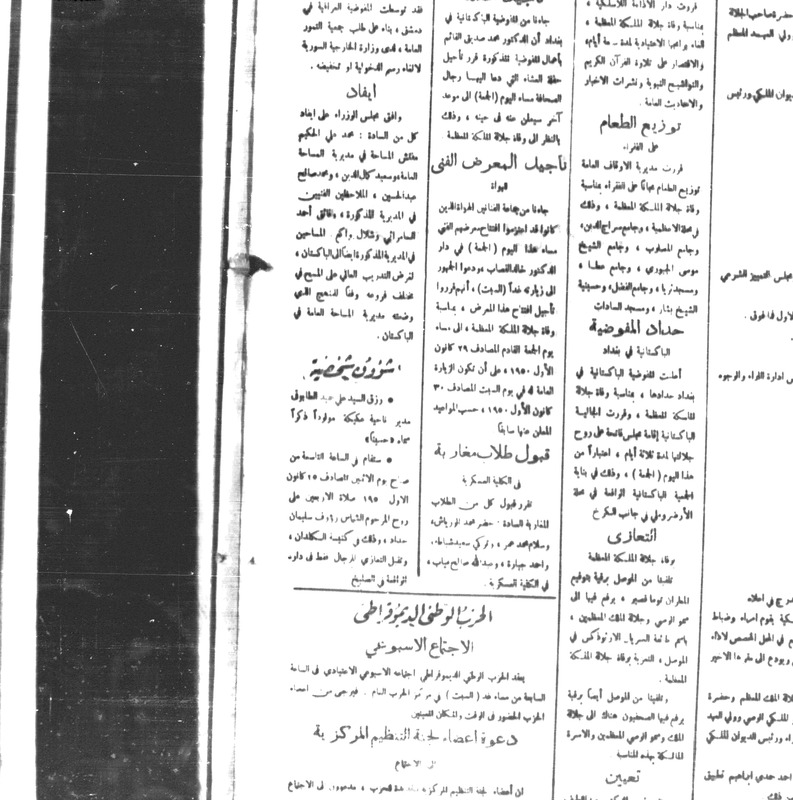 قررت دار الاذاعة اللاسلكية ،
بمناسبة وفاة جلالة الملكة المعظمة ،
الغاء برامجها الاعتيادية لمدة ٣ أيام،
والاقتصار على تلاوة القرآن الكريم
والتواشيح النبوية ونشرات الاخبار
والاحاديث العامة .
توزيع الطعام
على الفقراء
قررت مديرية الاوقاف العامة
توزيع الطعام مجانا على الفقراء بمناسبة
وفاة جلالة الملكة المعظمة ، وذلك
في محلة الاعظمية ، وجامع سراج الدين،
وجامع المصلوب ، وجامع الشيخ
موسى الجبوري ، وجامع عطا ،
ومسجد ثريا ، وجامع الفضل، وحسينية
الشيخ بشار ، ومسجد السادات
حداد المفوضية
الباكستانية في بغداد
أعلنت المفوضية الباكستانية في
بغداد حدادها ، بمناسبة وفاة جلالة
الملكة المعظمة ، وقررت الجالية
الباكستانية إقامة مجلس فاتحة على روح
جلالتها لمدة ثلاثة أيام ، اعتباراً من
هذا اليوم ( الجمعة ) ، وذلك في بناية
الجمعية الباكستانية الواقعة في محلة
في جانب الكرخ
التعازى
وفاة جلالة الملكة المعظمة
تلقينا من الموصل برقية بتوقيع
المطران توما قصير ، يرفع فيها الى
سمو الوصي وجلالة الملك المعظمين ،
باسم طائفة السريان الارثوذكس في
الموصل ، التعزية بوفاة جلالة الملكة
المعظمة .
وتلقينا من الموصل أيضاً برقية
يرفع فيها الصحفيون هناك الى جلالة
الملك وسمو الوصي المعظمين والاسرة
المالكة بهذه المناسبة
تعيين
جاءنا من المفوضية الباكستانية في
بغداد أن الدكتور محمد صديق القائم
بأعمال المفوضية المذكورة قرر تأجيل
حفلة العشاء التي دعا اليها رجال
الصحافة مساء اليوم (الجمعة) الى موعد
آخر سيعلن عنه في حينه ، وذلك
بالنظر الى وفاة جلالة الملكة المعظمة .
تأجيل المعرض الفنى
للهواة
جاءنا من جماعة الفنانين الهواة الذين
كانوا قد اعتزموا افتتاح معرضهم الفني
مساء هذا اليوم ( الجمعة ) في دار
الدكتور خالد القصاب ودعوا الجمهور
الى زيارته غداً (السبت) ، أنهم قرروا
تأجيل افتتاح هذا المعرض ، بمناسبة
وفاة جلالة الملكة المعظمة ، الى مساء
يوم الجمعة القادم المصادف ٢٩ كانون
الأول ١٩٥٠ ، على أن تكون الزيارة
العامة له في يوم السبت المصادف ٣٠
كانون الأول ١٩٥٠ ، حسب المواعيد
المعلن عنها سابقاً
قبول طلاب مغاربة
في الكلية العسكرية
تقرر قبول كل من الطلاب
المغاربة السادة : حضر محمد
وسلام محمد عمر ، وتركي سعيد
واحمد جبارة ، وعبدالله صالح
في الكلية العسكرية .
فقد توسطت المفوضية العراقية في
دمشق ، بناء على طلب جمعية التمور
العامة ، لدى وزارة الخارجية السورية
لالغاء رسم الدخولية او تخفيضه .
ايفاد
وافق مجلس الوزراء على ايفاد
كل من السادة : محمد علي الحكيم
مفتش المساحة في مديرية المساحة
العامة، وسعيد كمال الدين ، ومحمد صالح
عبدالحسين ، الملاحظين الفنيين
في المديرية المذكورة ، وفائق أحمد
السامرائي وشلال واكم المساحين
في المديرية المذكورة ايضاً الى الباكستان ،
لغرض التدريب العالي على المسح في
مختلف فروعه وفقاً للمنهج الذي
وضعته مديرية المساحة العامة في
الباكستان .
شؤون شخصية
• رزق السيد علي عبد
مدير ناحية عكيكة مولوداً ذكراً
سماه «حسيناً»
• ستقام في الساعة التاسعة من
صباح يوم الاثنين المصادف ٢٥ كانون
الاول ١٩٥٠ صلاة الاربعين على
روح المرحوم الشماس رؤوف سليمان
حداد ، وذلك في كنيسة الكلدان ،
وتقبل التعازي للرجال فقط في داره
الواقعة في
الحزب الوطنى الديموقراطى
الاجتماع الاسبوعي
يعقد الحزب الوطني الديموقراطي اجتماعه الاسبوعي الاعتيادي في الساعة
السابعة من مساء غد ( السبت ) في مركز الحزب العام . فيرجى من اعضاء
الحزب الحضور في الوقت والمكان المعينين
دعوة أعضاء لجنة التنظيم المركزية
الى الاجتماع
ان أعضاء لجنة التنظيم المركزية للحزب ، مدعوون الى الاجتماع
حضرة صاحب الجلالة
وولي العهد المعظم
الديوان الملكي ورئيس
مجلس التمييز الشرعي
الاول فما فوق .
ادارة اللواء والوجوه
الملك المعظم وحضرة
الملكي الوصي وولي العهد
ورئيس الديوان الملكي
احمد حمدي ابراهيم تطبيق